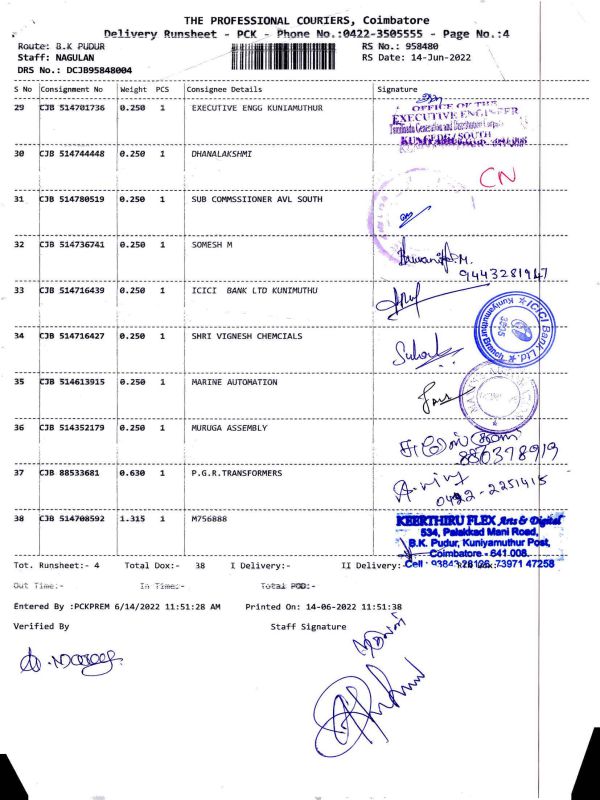 THE PROFESSIONAL COURIERS, Coimbatore
Delivery Runsheet - PCK - Phone No.:0422-3505555 - Page No.:4
Route: B.K PUDUR RS No.: 958480
Staff: NAGULAN RS Date: 14-Jun-2022
DRS No.: DCJB95848004
S No Consignment No Weight PCS Consignee Details Signature
29 CJB 514701736 0.250 1 EXECUTIVE ENGG KUNIAMUTHUR
OFFICE OF THE
EXECUTIVE ENGINEER
Tamilnadu Generation and Distribution
SOUTH
30 CJB 514744448 0.250 1 DHANALAKSHMI
CN
31 CJB 514780519 0.250 1 SUB COMMSSIONER AVL SOUTH
32 CJB 514736741 0.250 1 SOMESH M
9443281947
33 CJB 514716439 0.250 1 ICICI BANK LTD KUNIMUTHU
ICICI Bank Ltd.
Kuniyamuthur Branch
34 CJB 514716427 0.250 1 SHRI VIGNESH CHEMCIALS
35 CJB 514613915 0.250 1 MARINE AUTOMATION
36 CJB 514352179 0.250 1 MURUGA ASSEMBLY
37 CJB 88533681 0.630 1 P.G.R.TRANSFORMERS
0422-2251415
38 CJB 514708592 1.315 1 M756888
KEERTHIRU FLEX Arts & Digital
534, Palakkad Mani Road,
B.K. Pudur, Kuniyamuthur Post,
Coimbatore - 641 008.
Tot. Runsheet:- 4 Total Dox:- 38 I Delivery:- II Delivery:- Cell : 73971 47258
Out Time:- In Time:- Total POD:-
Entered By :PCKPREM 6/14/2022 11:51:28 AM Printed On: 14-06-2022 11:51:38
Verified By Staff Signature